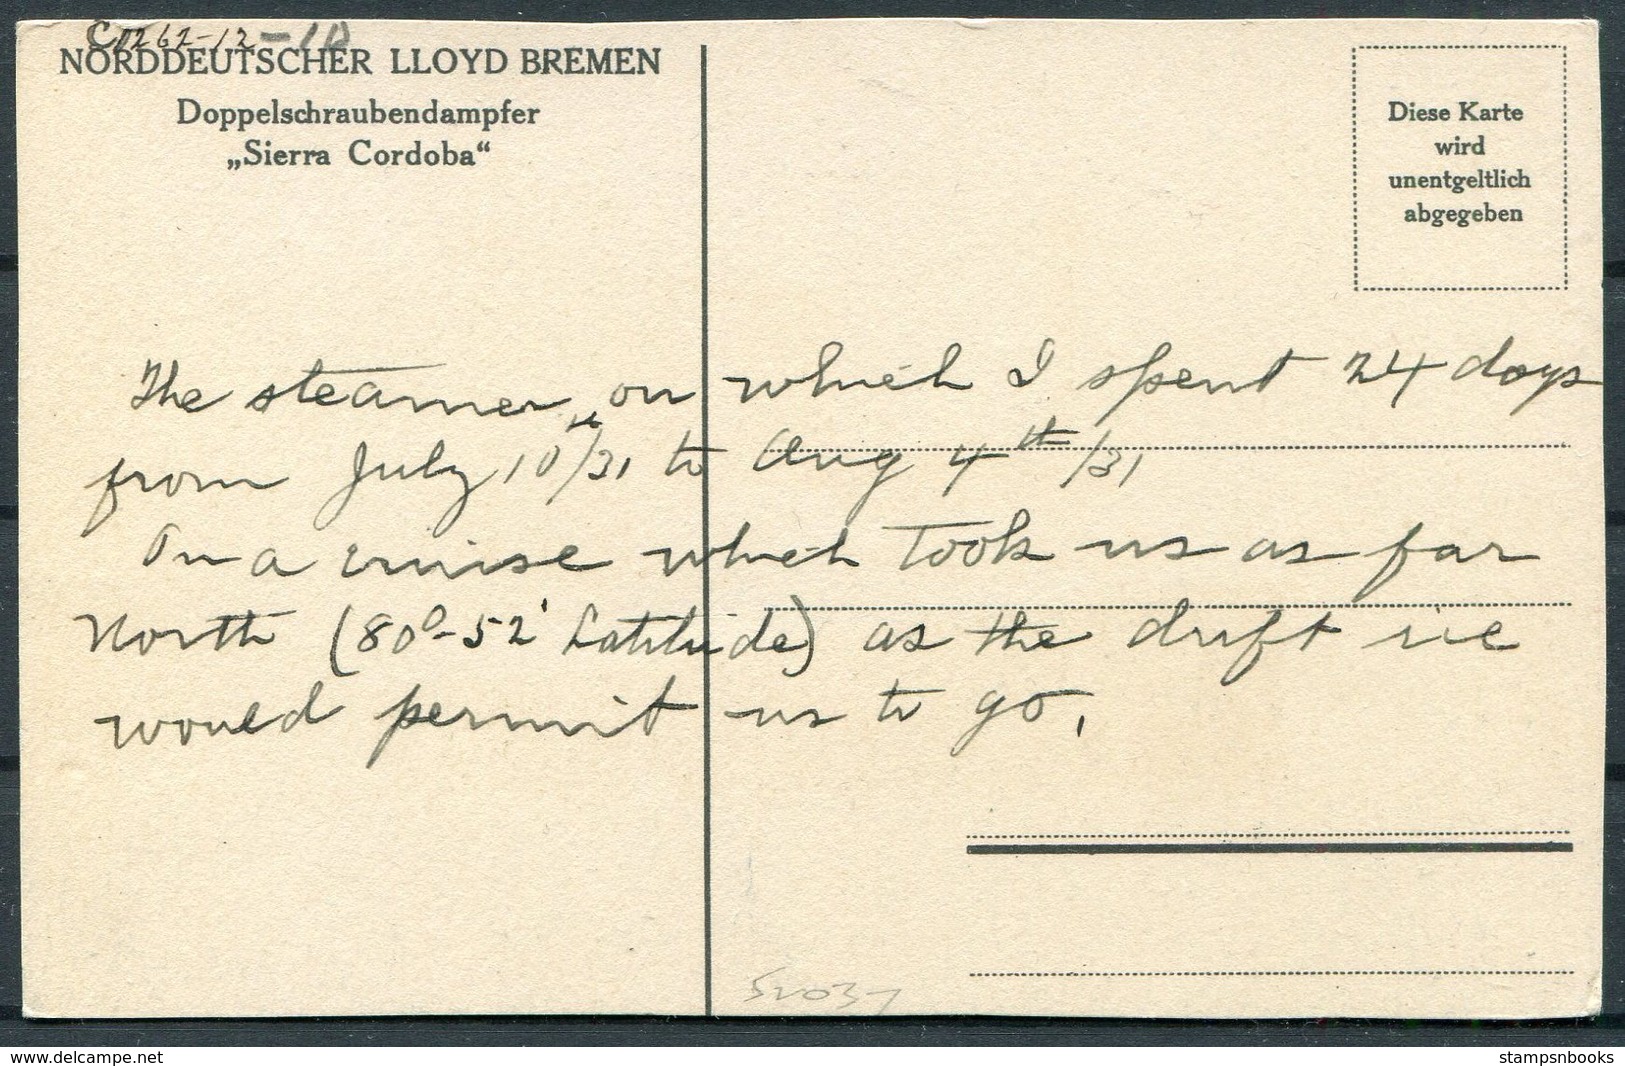 C1262-12-10
NORDDEUTSCHER LLOYD BREMEN
Doppelschraubendampfer
„Sierra Cordoba“
Diese Karte
wird
unentgeltlich
abgegeben
The steamer, on which I spent 24 days
from July 10th/31 to Aug 4th/31
On a cruise which took us as far
North (80°-52' Latitude) as the drift ice
would permit us to go.
www.delcampe.net
stampsnbooks